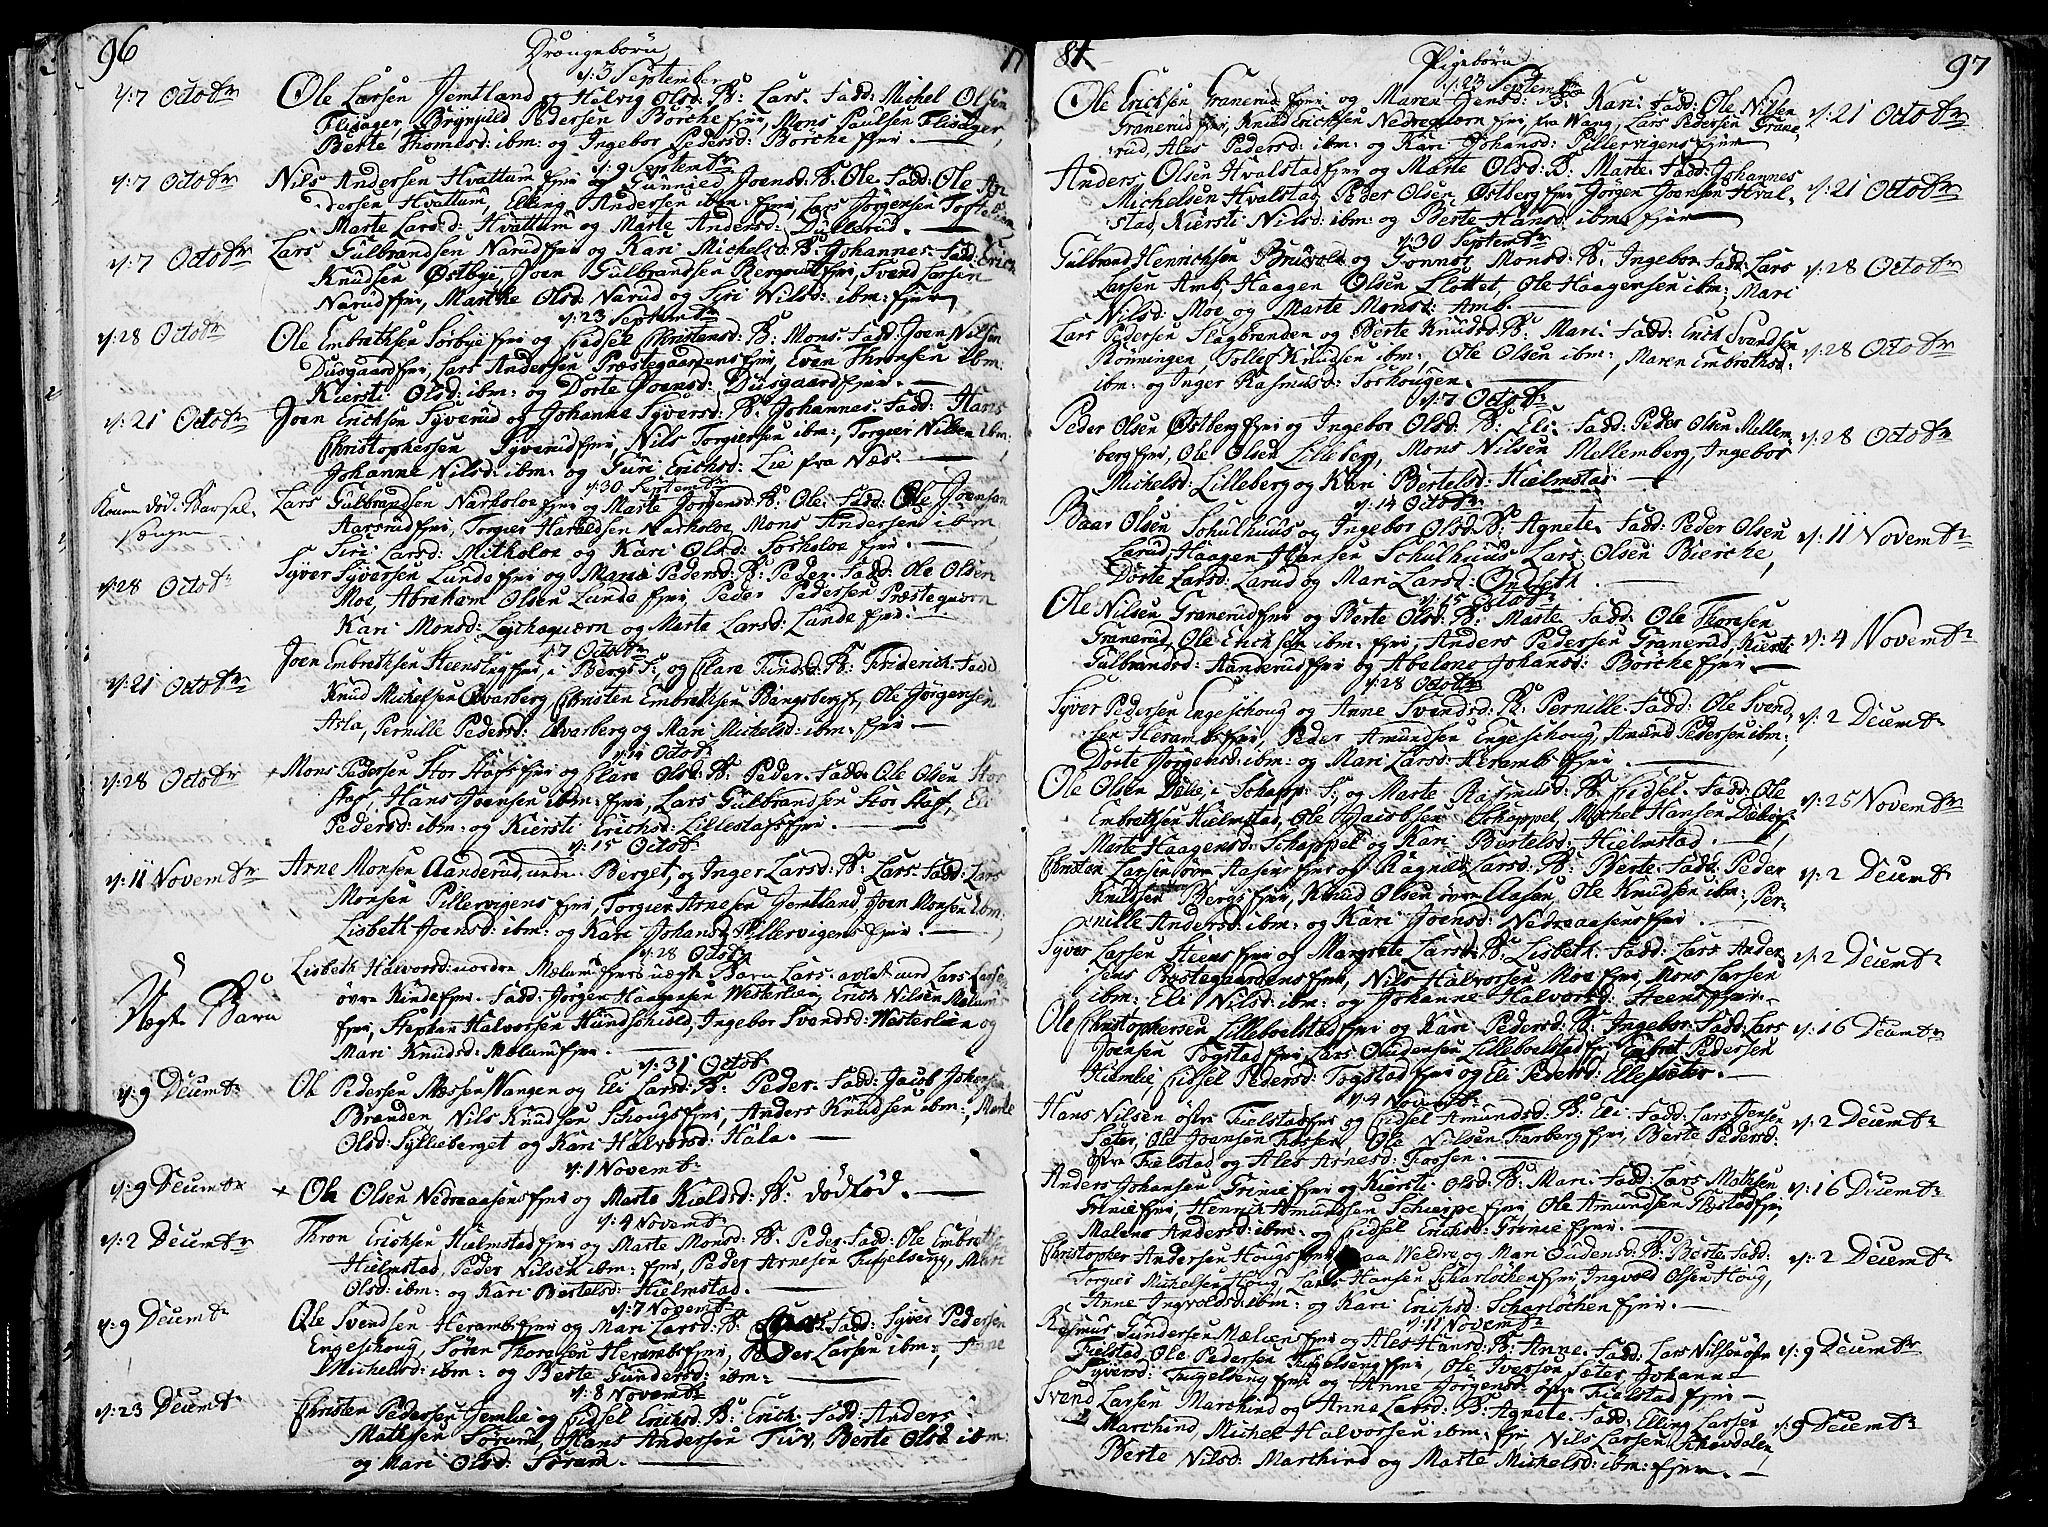 96
Drængebørn 17
d: 3 September
d: 7 Octobr
Ole Larsen Jemtland og Helvig Olsd: B: Lars. Fadd: Michel Olsen
Flisager, Brynild Pedersen Borche fjer, Mons Paulsen Flisager,
Berte Thomasd: ibm: og Ingebor Pedersd: Borche fjer. —
d: 9 Septembr
d: 7 Octobr
Nils Andersen Hvattum fjer og Gunnild Joensd: B: Ole. Fadd: Ole An-
dersen Hvattum, Elling Andersen ibm: fjer, Lars Jørgensen
Marte Larsd: Hvattum og Marte Andersd: Dullerud. —
d: 7 Octobr
Lars Gulbrandsen Narud fjer og Kari Michelsd: B: Johannes. Fadd: Erich
Knudsen Østbye, Joen Gulbrandsen Bergerud fjer, Svend Larsen
Narud fjer, Marthe Olsd: Narud og Siri Nilsd: ibm: fjer
d: 23 Septembr
d: 28 Octobr
Ole Embrethsen Sørbye fjer og Eidsel Christensd: B: Mons. Fadd: Joen Nilsen
Dusgaard fjer, Lars Andersen Præstegaardens fjer, Even Thronsen ibm:
Kiersti Olsd: ibm: og Dorte Joensd: Dusgaard fjer. —
d: 21 Octobr
Joen Erichsen Syverud og Johanne Syversd: B: Johannes. Fadd: Hans
Christophersen Syverud fjer, Nils Torgiersen ibm:, Torgier Nilsen ibm:
Johanne Nilsd: ibm: og Turi Erichsd: Lie fra Næs. —
d: 30 Septembr
Konen död i Barsel-
Sengen
Lars Gulbrandsen Narholoe fjer og Marte Jørgensd: B: Ole. Fadd: Ole Joensen
Aarsrud fjer, Torgier Haraldsen Narholoe, Mons Andersen ibm
Siri Larsd: Mitholoe og Kari Olsd: Sørholoe fjer. —
d: 28 Octobr
Syver Syversen Lunde fjer og Mari Pedersd: B: Peder. Fadd: Ole Olsen
Moe, Abraham Olsen Lunde fjer Peder Pedersen Præsteqværn
Kari Monsd: Lychaqværn og Marte Larsd: Lunde fjer. —
d: 7 Octobr
d: 21 Octobr
Joen Embrethsen Steensleg fjer, i Bergs S: og Clare Tundsd: B: Friderich. Fadd
Knud Michelsen Qvarberg, Christen Embrethsen Bangsberg f, Ole Jørgensen
Asta, Pernille Pedersd: Qvarberg og Mari Michelsd: ibm: fjer —
d: 14 Octobr
d: 28 Octobr
Mons Pedersen Stor Stafs fjer og Clare Olsd: B: Peder. Fadd: Ole Olsen Stor
Staf, Hans Joensen ibm: fjer, Lars Gulbrandsen Stor Staf, Eli
Pedersd: ibm: og Kiersti Erichsd: Lillestafs fjer. —
d: 15 Octobr
d: 11 Novembr
Arne Monsen Aanderud, under Berget, og Inger Larsd: B: Lars. Fadd: Lars
Monsen Pillervigens fjer, Torgier Arnesen Jemtland, Joen Monsen ibm:
Lisbeth Joensd: ibm: og Kari Johansd: Pillervigens fjer. —
d: 28 Octobr
Uægte Barn
Lisbeth Halvorsd: nordre Mælum fjers uægte Barn Lars. avlet med Lars Larsen
övre Kinde fjer. Fadd: Jørgen Haagensen Westerlien, Erich Nilsen Mælums
fjer, Stephan Halvorsen Kundschild, Ingebor Svendsd: Westerlien og
Mari Knudsd: Mælum fjer. —
d: 31 Octobr
d: 9 Decembr
Ole Pedersen Mæsen Vangen og Eli Larsd: B: Peder. Fadd: Jacob Johansen
Branden Nils Knudsen Skougs fjer, Anders Knudsen ibm:, Marte
Olsd: Syllieberget og Kari Halvorsd: Hala. —
d: 1 Novembr
d: 9 Decembr
Ole Olsen Nedreaasens fjer og Marte Kieldsd: B: dödföd. —
d: 4 Novembr
d: 2 Decembr
Thron Erichsen Hielmstad fjer og Marte Monsd: B: Peder. Fadd: Ole Embreths
Hielmstad, Peder Nilsen ibm: fjer, Peder Arnesen Fuglseng, Mari
Olsd: ibm: og Kari Bertelsd: Hielmstad. —
d: 7 Novembr
d: 9 Decembr
Ole Svendsen Herambs fjer og Mari Larsd: B: Lars. Fadd: Syver Pedersen
Engeschoug, Søren Thoresen Herambs fjer, Peder Larsen ibm:, Anne
Michelsd: ibm: og Berte Gundersd: ibm: —
d: 8 Novembr
d: 23 Decembr
Christen Pedersen Jemlie og Eidsel Erichsd: B: Erich. Fadd: Anders
Mathisen Sørum, Hans Andersen Tiur, Berte Olsd: ibm:
og Mari Olsd: Sørum. —
84
Pigebørn
97
d: 23 Septembr
Ole Erichsen Granerud fjer og Maren Jensd: B: Kari. Fadd: Ole Nilsen
Granerud fjer, Knud Erichsen Nedreqvern fjer, fra Wang, Lars Pedersen Grane-
rud, Ales Pedersd: ibm: og Kari Johansd: Pillervigens fjer
d: 21 Octobr
Anders Olsen Hvalstad fjer og Marte Olsd: B: Marte. Fadd: Johannes
Michelsen Hvalstad, Peder Olsen Østberg fjer Jörgen Joensen Hval-
stad, Kiersti Nilsd: ibm: og Berte Hansd: ibm: fjer
d: 21 Octobr
d: 30 Septembr
Gulbrand Henrichsen Bruvold og Gonnor Monsd: B: Ingebor. Fadd: Lars
Larsen Amb, Haagen Olsen Slottet, Ole Haagensen ibm: Mari
Nilsd: Moe og Marte Monsd: Amb. —
d: 28 Octobr
Lars Pedersen Flagbranden og Berte Knudsd: B: Mari. Fadd: Erich Svendsen
Rønningen, Tollef Knudsen ibm:, Ole Olsen ibm:, Maren Embrethsd:
ibm: og Inger Rasmusd: Sørhougen. —
d: 28 Octobr
d: 7 Octobr
Peder Olsen Østberg fjer og Ingebor Olsd: B: Eli. Fadd: Peder Olsen Mellem-
berg fjer, Ole Olsen Lilleberg, Mons Nilsen Mellemberg, Ingebor
Michelsd: Lilleberg og Kari Bertelsd: Hielmstad —
d: 28 Octobr
d: 14 Octobr
Baar Olsen Schulhuus og Ingebor Olsd: B: Agnete. Fadd: Peder Olsen
Larud, Haagen Hansen Schulhuus, Lars Olsen Bierche,
Dorte Larsd: Larud og Mari Larsd: Ondseth. —
d: 11 Novembr
d: 15 Octobr
Ole Nilsen Granerud fjer og Berte Olsd: B: Marte Fadd: Ole Thoresen
Granerud, Ole Erichsen ibm: fjer, Anders Pedersen Granerud, Kiersti
Gulbrandsd: Aanderud fjer og Abelone Johansd: Borche fjer. —
d: 4 Novembr
d: 28 Octobr
Syver Pedersen Engeschoug og Anne Svendsd: B: Pernille. Fadd: Ole Svend-
sen Herambs fjer, Peder Amundsen Engeschoug, Amund Pedersen ibm:
Dorte Jørgensd: ibm: og Mari Larsd: Herambs fjer. —
d: 2 Decembr
Ole Olsen Delle, i Schapp: S:, og Marte Rasmusd: B: Eidsel. Fadd: Ole
Embrethsen Hielmstad, Ole Jacobsen Schappel, Michel Hansen
Marte Haagensd: Schappel og Kari Bertelsd: Hielmstad. —
d: 25 Novembr
Christen Larsen övre Aasens fjer og Ragnild Larsd: B: Berte. Fadd: Peder
Knudsen Bergs fjer, Knud Olsen övre Aasen, Ole Knudsen ibm:, Per-
nille Andersd: ibm: og Kari Joensd: Nedreaasens fjer. —
d: 2 Decembr
Syver Larsen Steens fjer og Margrete Larsd: B: Lisbeth. Fadd: Lars Ander-
sens Præstegaardens fjer, Nils Halvorsen Moe fjer, Mons Larsen
ibm: Eli Nilsd: ibm: og Johanne Halvorsd: Steens fjer. —
d: 2 Decembr
Ole Christophersen Lilleboelstad fjer og Kari Pedersd: B: Ingebor. Fadd: Lars
Joensen Togstad fjer, Lars Oudensen Lilleboelstad fjer Embret Pedersen
Humlie, Eidsel Pedersd: Togstad fjer og Eli Pedersd: Ellesæter. —
d: 16 Decembr
d: 4 Novembr
Hans Nilsen östre Fielstad fjer og Eidsel Amundsd: B: Eli. Fadd: Lars Jensen
Sæter, Ole Joensen Fossen Ole Nilsen Farberg fjer, Berte Pedersd:
östre Fielstad og Ales Arnesd: Fossen. —
d: 2 Decembr
Anders Johansen Grinie fjer og Kiersti Olsd: B: Mari. Fadd: Lars Mathisen
Grinie fjer, Henrich Amundsen Schierpe fjer, Ole Amundsen Flostad fjer
Malene Andersd: ibm: og Eidsel Erichsd: Grinie fjer. —
d: 16 Decembr
Christopher Andersen Hougs fjer paa Weldre og Mari Oudensd: B: Berte. Fadd:
Torgier Michelsen Houg, Lars Hansen Scharlochen fjer, Ingvold Olsen Houg,
Anne Ingvoldsd: ibm: og Kari Erichsd: Scharlochen fjer. —
d: 2 Decembr
d: 11 Novembr
Rasmus Gundersen Mæliens fjer og Ales Hansd: B: Anne. Fadd: Lars Nilsen östre
Fielstad, Ole Pedersen Fuglseng fjer, Ole Iversen Sæter, Johanne
Syversd: Fuglseng fjer og Anne Jørgensd: östre Fielstad fjer —
d: 9 Decembr
Svend Larsen Marchind og Anne Larsd: B: Agnete. Fadd: Elling Larsen
Marchind, Michel Halvorsen ibm: fjer Nils Larsen Schovdalen,
Berte Nilsd: Marchind og Marte Michelsd: ibm: fjer. —
d: 9 Decembr